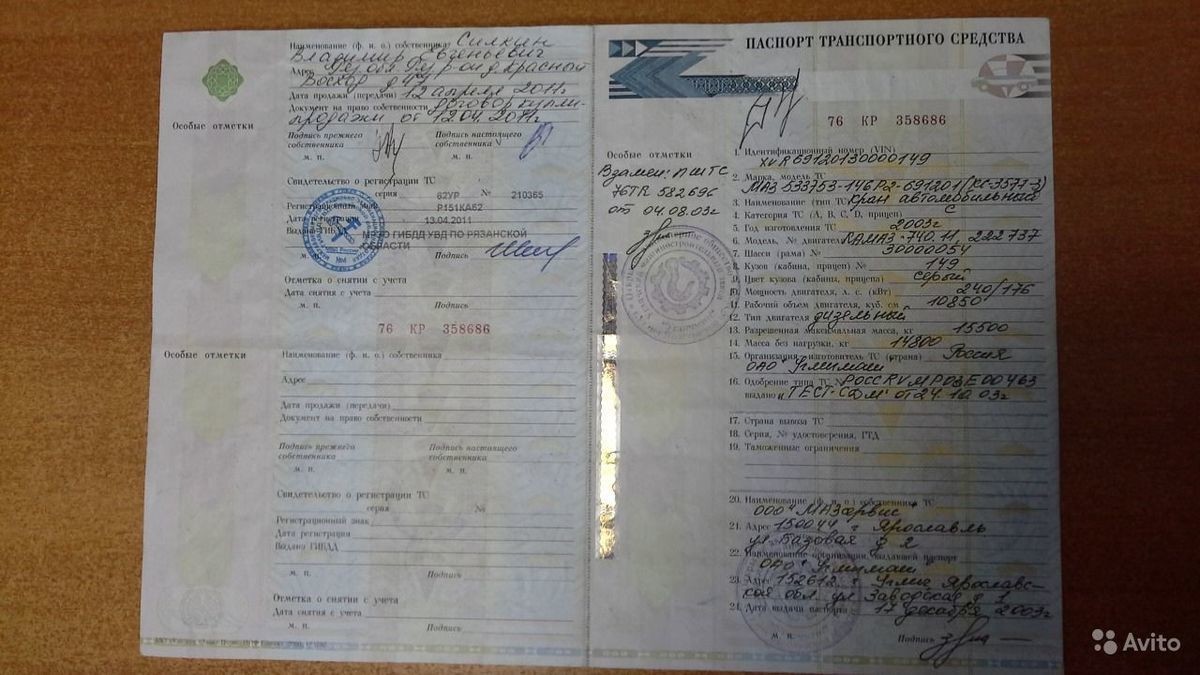 Наименование (ф. и. о.) собственника Силкин
Владимир Евгеньевич
Адрес
Восход
Дата продажи (передачи) 12 апреля 2011г
Документ на право собственности договор купли-
продажи от 12.04.2011г
Особые отметки
Подпись прежнего собственника
Подпись настоящего собственника
м. п.
м. п.
Свидетельство о регистрации ТС
серия 62УР № 210365
Регистрационный знак Р151КА62
Дата регистрации 13.04.2011
Выдано ГИБДД МРЭО ГИБДД УВД ПО РЯЗАНСКОЙ
ОБЛАСТИ
м. п. Подпись
Отметка о снятии с учета
Дата снятия с учета
м. п. Подпись
76 КР 358686
Особые отметки
Наименование (ф. и. о.) собственника
Адрес
Дата продажи (передачи)
Документ на право собственности
Подпись прежнего собственника
Подпись настоящего собственника
м. п.
м. п.
Свидетельство о регистрации ТС
серия №
Регистрационный знак
Дата регистрации
Выдано ГИБДД
м. п. Подпись
Отметка о снятии с учета
Дата снятия с учета
м. п. Подпись
ПАСПОРТ ТРАНСПОРТНОГО СРЕДСТВА
76 КР 358686
Особые отметки
Взамен ПШТС
76TR 582696
от 04.08.03г
1. Идентификационный номер (VIN)
XVR69120130000149
2. Марка, модель ТС
МАЗ 533753-146Р2-691201 (КС-3577-3)
3. Наименование (тип ТС) Кран автомобильный
4. Категория ТС (А, В, С, D, прицеп) С
5. Год изготовления ТС 2003г
6. Модель, № двигателя КАМАЗ-740.11 222737
7. Шасси (рама) № 30000054
8. Кузов (кабина, прицеп) № 149
9. Цвет кузова (кабины, прицепа) серый
10. Мощность двигателя, л. с. (кВт) 240/176
11. Рабочий объем двигателя, куб. см 10850
12. Тип двигателя дизельный
13. Разрешенная максимальная масса, кг 15500
14. Масса без нагрузки, кг 14800
15. Организация - изготовитель ТС (страна) Россия
ОАО "Угличмаш"
16. Одобрение типа ТС № РОСС RU МР03Е00463
выдано "ТЕСТ-СДМ" от 24.10.03г
17. Страна вывоза ТС
18. Серия, № удостоверения, ГТД
19. Таможенные ограничения
20. Наименование (ф. и. о.) собственника ТС
ООО "МАЗсервис"
21. Адрес 150044 г Ярославль
ул Базовая д 2
22. Наименование организации, выдавшей паспорт
ОАО "Угличмаш"
23. Адрес 152612 г Углич Ярославс-
кая обл. ул Заводская д 1
24. Дата выдачи паспорта 17 декабря 2003г
м. п. Подпись
Avito